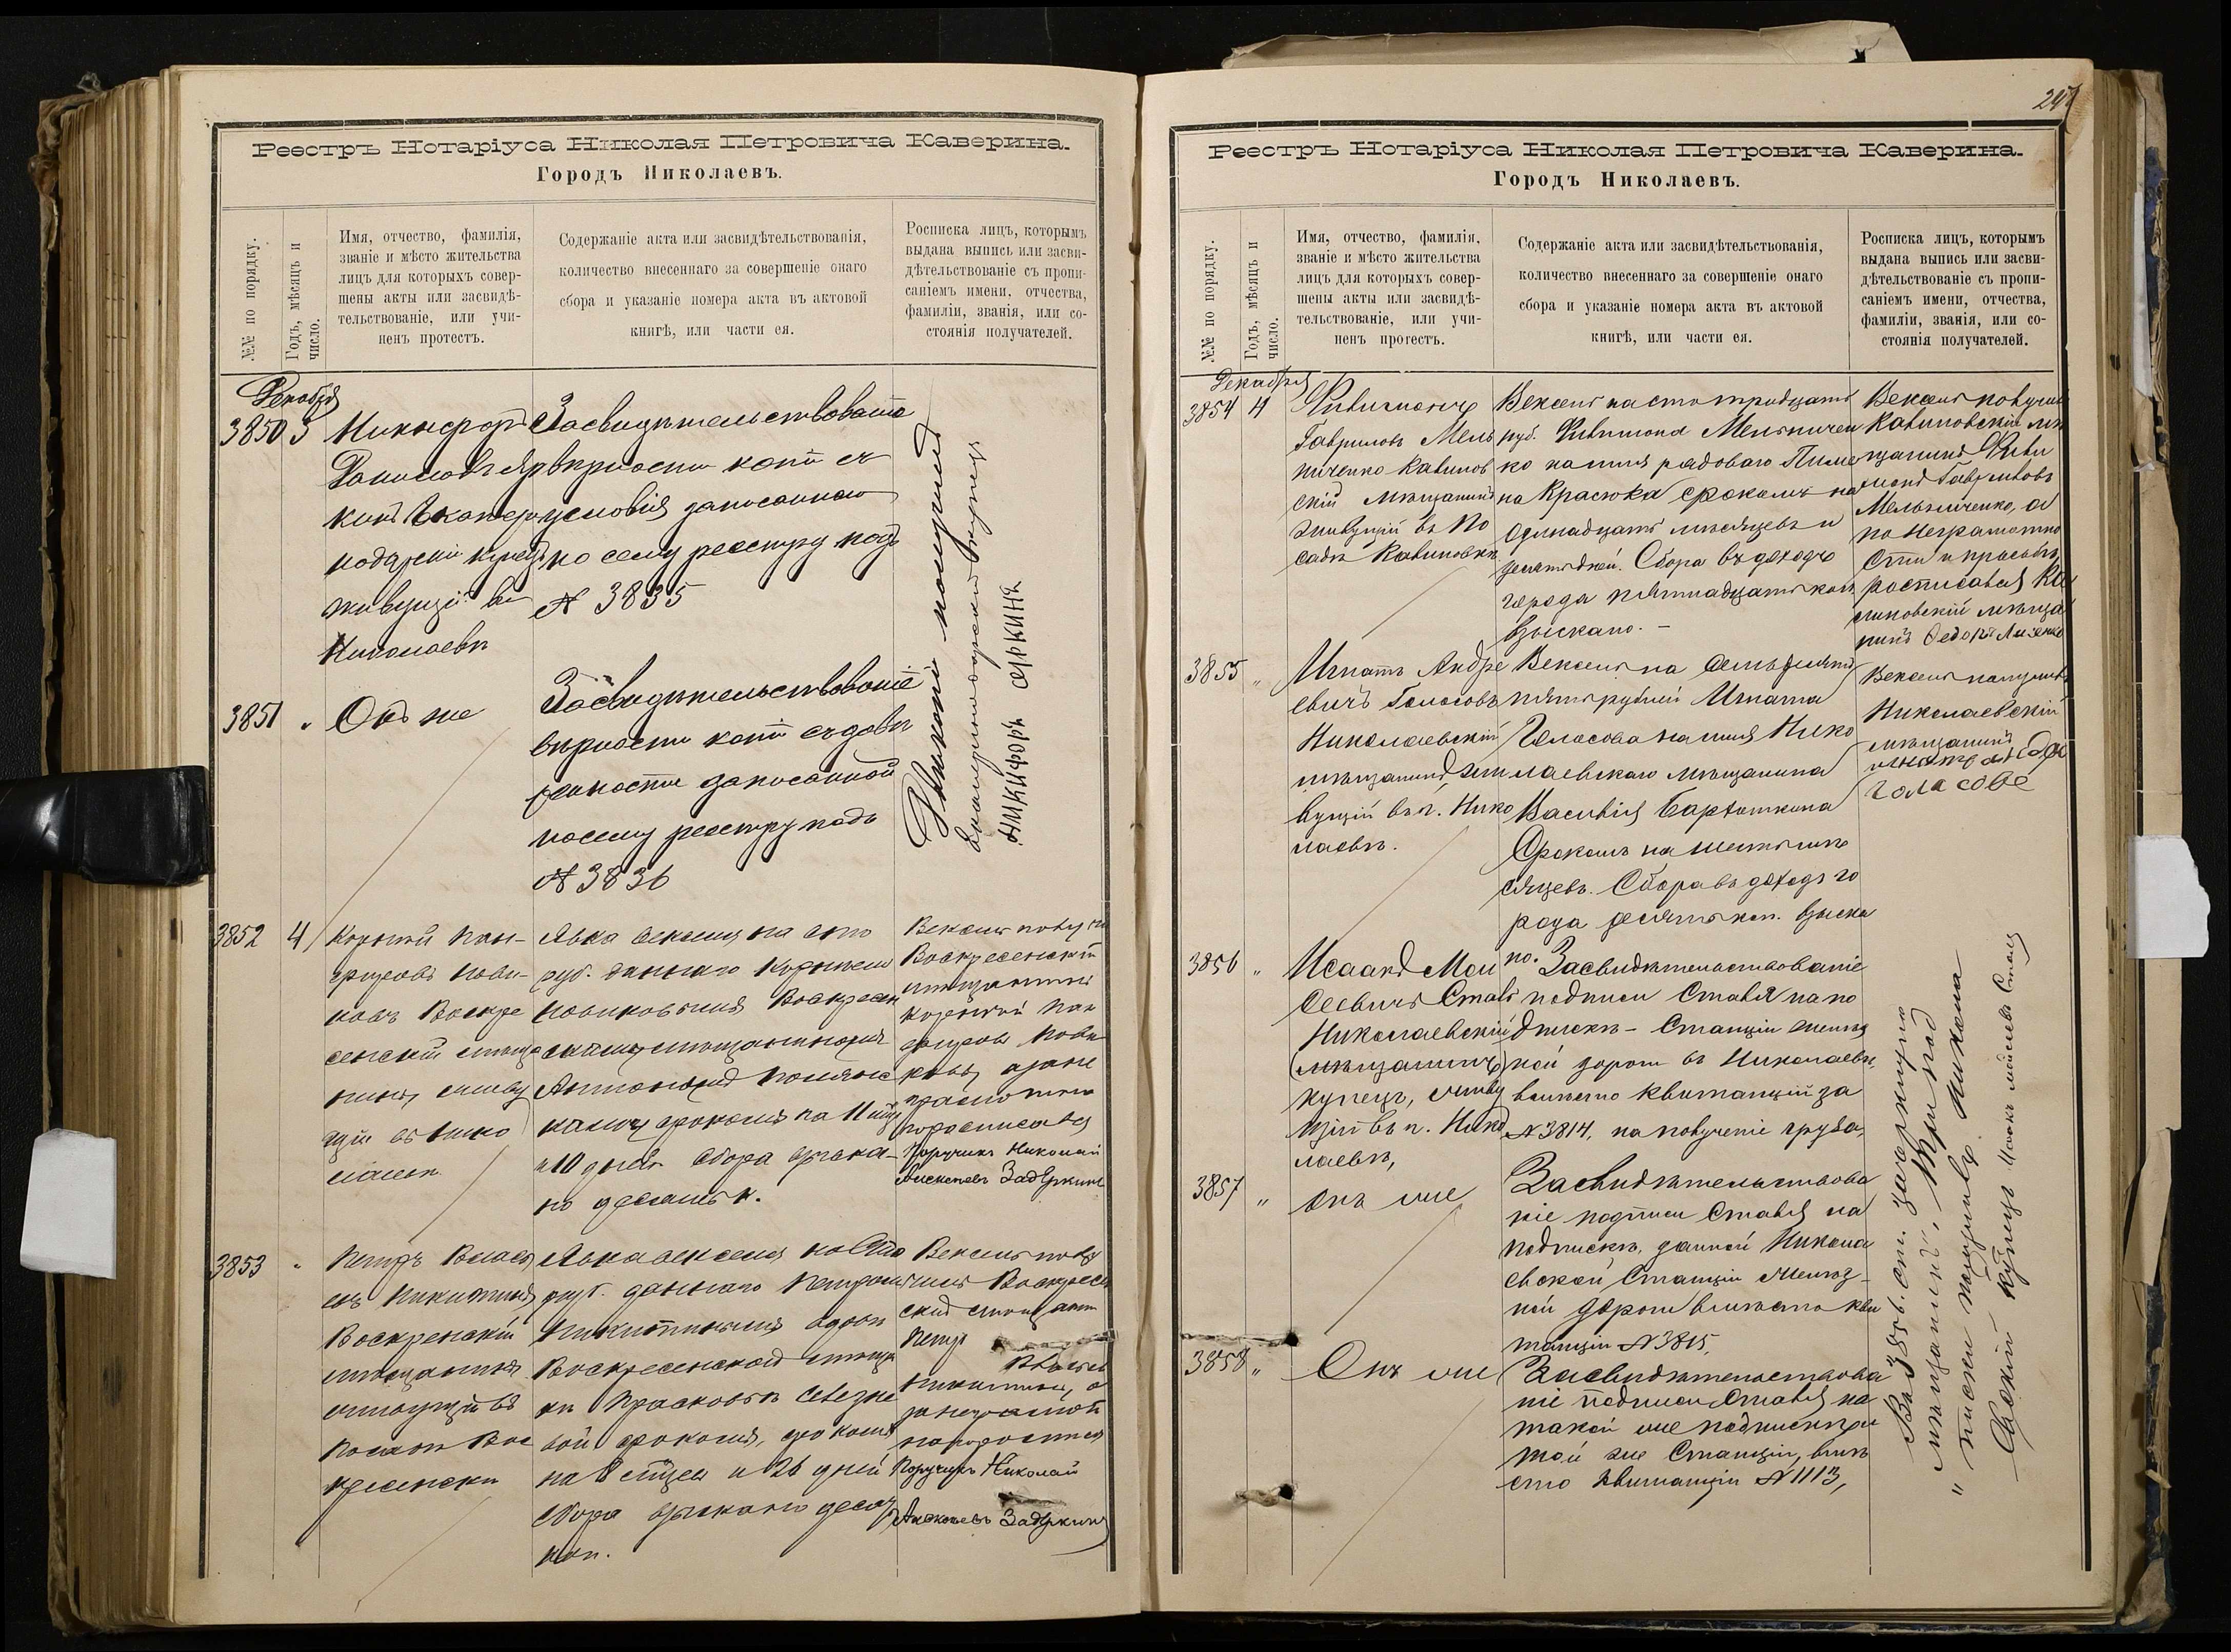 Реестръ Нотаріуса Николая Петровича Каверина.
Городъ Николаевъ.
№№ по порядку.
Годъ, мѣсяцъ и
число.
Имя, отчество, фамилія,
званіе и мѣсто жительства
лицъ для которыхъ совер-
шены акты или засвидѣ-
тельствованіе, или учи-
ненъ протестъ.
Содержаніе акта или засвидѣтельствованія,
количество внесеннаго за совершеніе онаго
сбора и указаніе номера акта въ актовой
книгѣ, или части ея.
Росписка лицъ, которымъ
выдана выпись или засви-
дѣтельствованіе съ пропи-
саніемъ имени, отчества,
фамиліи, званія, или со-
стоянія получателей.
Декабря
3850 3
Никифоръ
живущій въ
Николаевѣ
Засвидѣтельствованіе
вѣрности копіи съ
условія записаннаго
по сему реестру подъ
№ 3835
3851 "
Онъ же
Засвидѣтельствованіе
вѣрности копіи съ довѣ
ренности записанной
по сему реестру подъ
№ 3836
Двѣ копіи получилъ
Екатеринодарскій купецъ
Никифоръ
3852 4
Корнѣй Пан-
новъ Воскре
сенскій мѣща
нинъ, живу
щій въ Нико
лаевѣ
Явка векселя на сто
руб. даннаго Корнѣемъ
Новиковымъ Воскресен
скому мѣщанину
Антону
срокомъ на 11 мѣс
и 10 дней. Сбора взыска-
но десять к.
Вексель получи
Воскресенскій
мѣщанинъ
Корнѣй Пан
Нови
ковъ, а за не
грамотно
росписался
Поручикъ Николай
Алексѣевъ Задѣркинъ
3853 "
Петръ Влась
евъ Никитинъ
Воскресенскій
мѣщанинъ
живущій въ
посадѣ Вос
кресенскѣ
Явка векселя на Сто
руб. даннаго Петромъ
Никитинымъ вдовѣ
Воскресенской мѣщан
кѣ Прасковьѣ
срокомъ
на 8 мѣсяц и 26 дней
Сбора взыскано десять
коп.
Вексель полу
чилъ Воскресен
скій мѣщанин
Петр
Власьев
Никитинъ, а
за неграмотн
росписался
Поручикъ Николай
Алексѣевъ Задѣркинъ
Реестръ Нотаріуса Николая Петровича Каверина.
Городъ Николаевъ.
№№ по порядку.
Годъ, мѣсяцъ и
число.
Имя, отчество, фамилія,
званіе и мѣсто жительства
лицъ для которыхъ совер-
шены акты или засвидѣ-
тельствованіе, или учи-
ненъ протестъ.
Содержаніе акта или засвидѣтельствованія,
количество внесеннаго за совершеніе онаго
сбора и указаніе номера акта въ актовой
книгѣ, или части ея.
Росписка лицъ, которымъ
выдана выпись или засви-
дѣтельствованіе съ пропи-
саніемъ имени, отчества,
фамиліи, званія, или со-
стоянія получателей.
Декабря
3854 4
Филимонъ
Гавриловъ Мель
ниченко Калинов
скій мѣщанинъ
живущій въ По
садѣ Калиновкѣ
Вексель на сто тридцать
руб. Филимона Мельничен
ко на имя рядового Пиме
на Красюка срокомъ на
одинадцать мѣсяцевъ и
десять дней. Сбора въ доходъ
города пятнадцать коп.
взыскано. -
Вексель получилъ
Калиновскій мѣ
щанинъ Фили
монъ Гавриловъ
Мельниченко, а
по неграмотно
сти и просьбѣ
росписался Ка
линовскій мѣща
нинъ Федоръ Лисенко
3855 "
Игнатъ Андре
евичъ Голосовъ
Николаевскій
мѣщанинъ, жи
вущій въ г. Нико
лаевѣ.
Вексель на семьдесятъ
пять рублей Игната
Голосова на имя Нико
лаевскаго мѣщанина
Василія
Срокомъ на шесть мѣ
сяцевъ. Сбора въ доходъ го
рода десять коп. взыска
но.
Вексель получилъ
Николаевскій
мѣщанинъ
голасове
3856 "
Исаакъ Мои
сеевичъ Ставъ
Николаевскій
(мѣщанинъ)
купецъ, живу
щій въ г. Нико
лаевѣ,
Засвидѣтельствованіе
подписи Ставя на по
дпискѣ - Станціи желѣз
ной дороги въ Николаевѣ,
вмѣсто квитанцій за
№ 3814, на полученіе груза,
3857 "
Онъ же
Засвидѣтельствова
ніе подписи Ставя на
подпискѣ, данной Никола
евской Станціи Желѣз-
ной дороги вмѣсто кви
танціи № 3815,
3858 "
Онъ же
Засвидѣтельствова
ніе подписи Ставя на
такой же подпискѣ
той же Станціи, вмѣ
сто квитанціи № 1113,
Въ 3856. ст. зачеркнуто
"мѣщанинъ", Три под
"писки получилъ Никола
евскій купецъ Исаакъ Мойсеевъ Ставъ